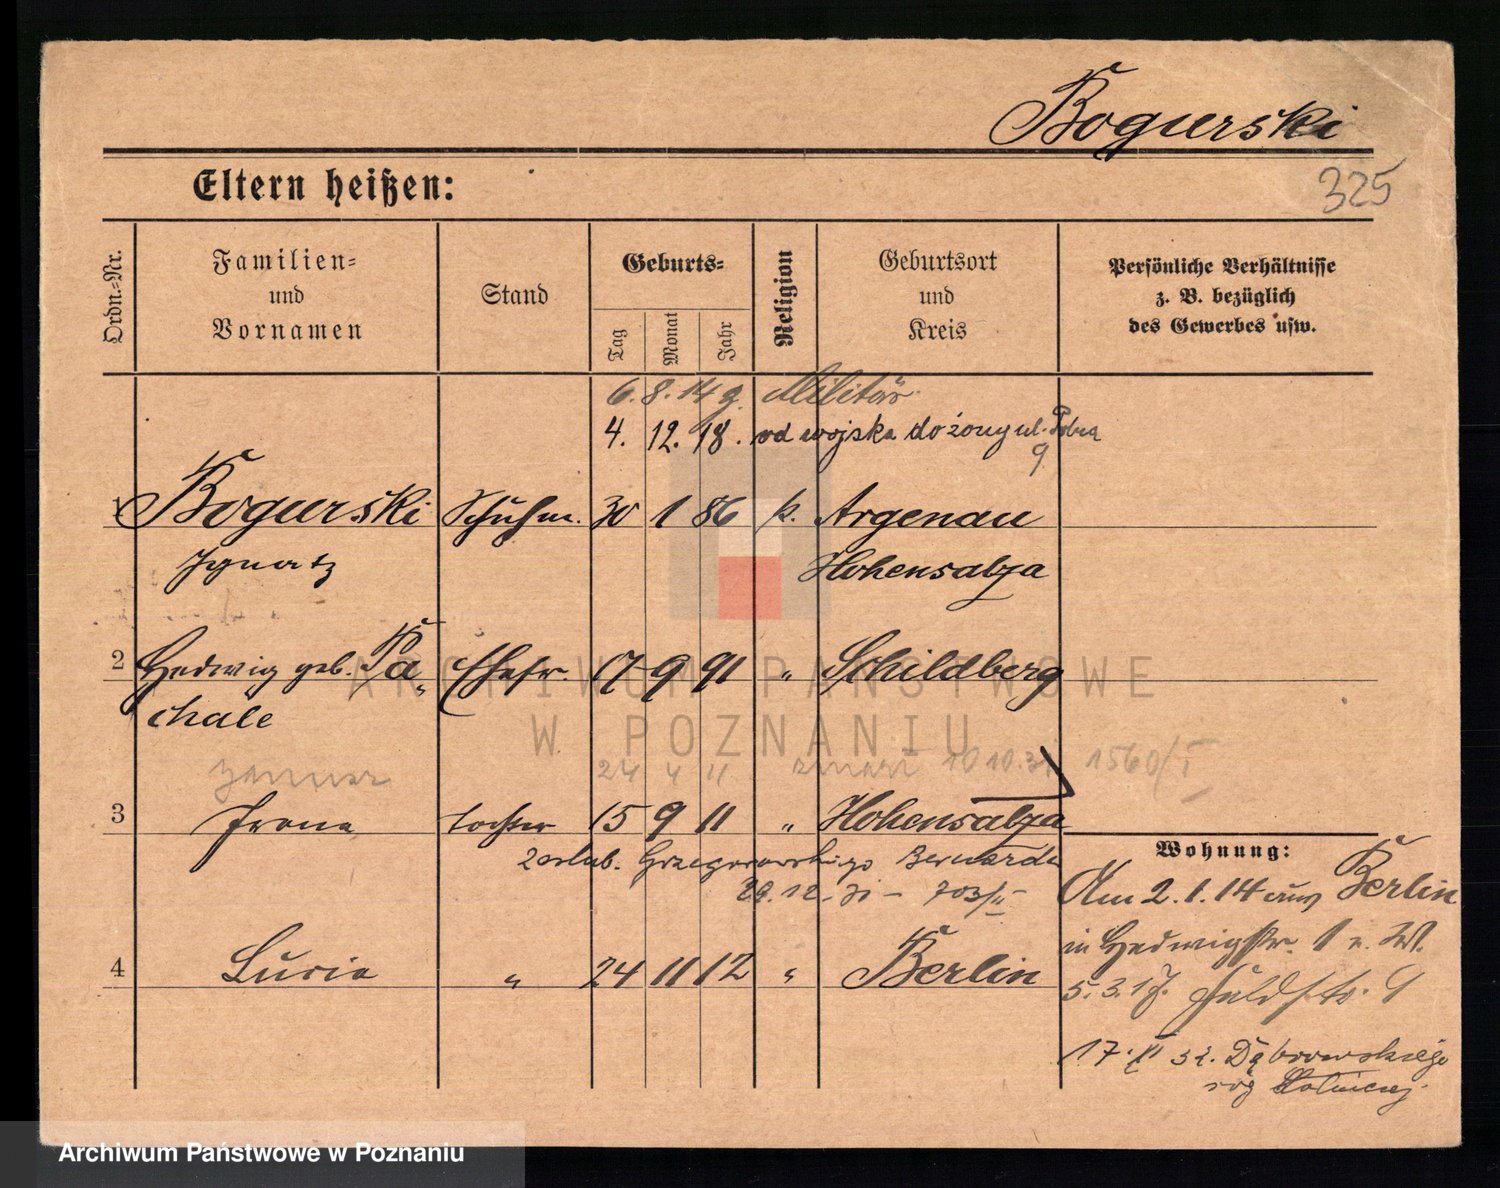 Bogurski
325
Eltern heißen:
Ordn.-Nr.
Familien-
und
Vornamen
Stand
Geburts-
Tag
Monat
Jahr
Religion
Geburtsort
und
Kreis
Persönliche Verhältnisse
z. B. bezüglich
des Gewerbes usw.
6. 8. 14 g. Militär
4. 12. 18. od wojska do żony ul. Polna
9
1 Bogurski Schuhm. 30 1 86 k. Argenau
Ignatz Hohensalza
2 Hedwig geb. Pa„ Ehefr. 17 9 91 " Schildberg
chale
24 4 11 10 10.31 1560/I
3 Irena Tochter 15 9 11 " Hohensalza
zaślub. Grzegorowskiego Bernarda
29. 12. 31 – 703/II
Wohnung:
Am 2. 1. 14 aus Berlin
in Hedwigstr. 1 v. W.
5. 3. 17. Feldstr. 9
4 Lucie " 24 11 12 " Berlin
17. XI 32. Dąbrowskiego
róg
ARCHIWUM PAŃSTWOWE
W POZNANIU
Archiwum Państwowe w Poznaniu